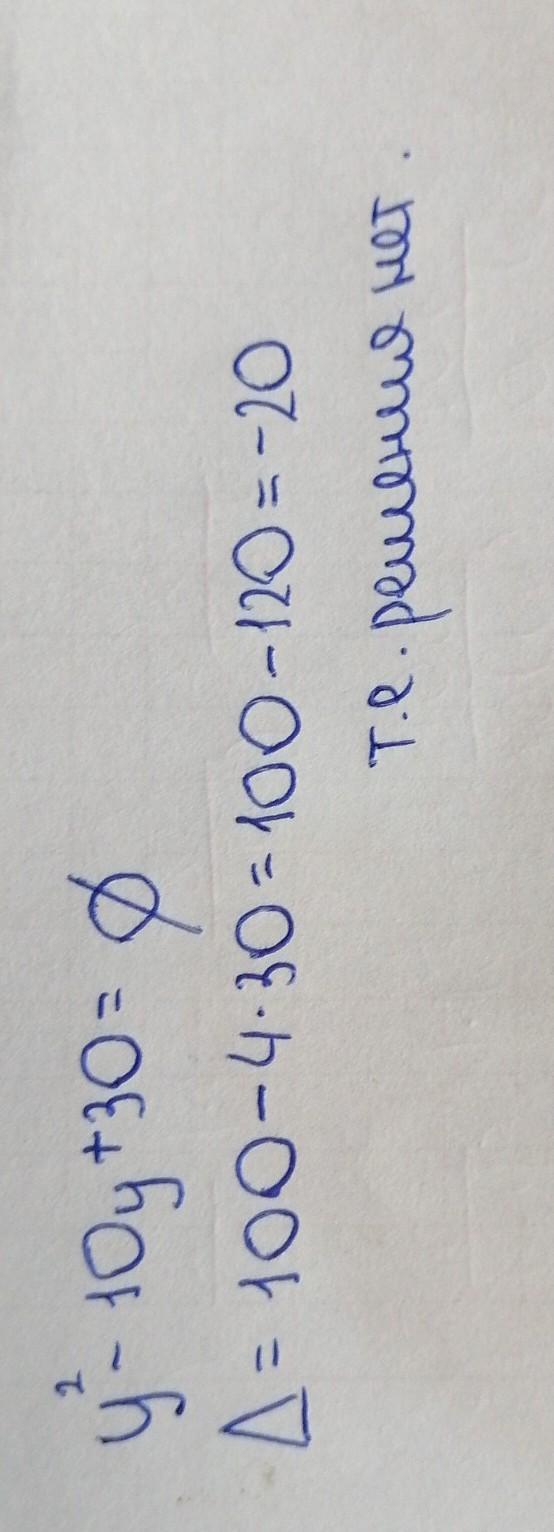 y² - 10y + 30 = ∅
Δ = 100 - 4·30 = 100 - 120 = -20
т.е. решения нет.